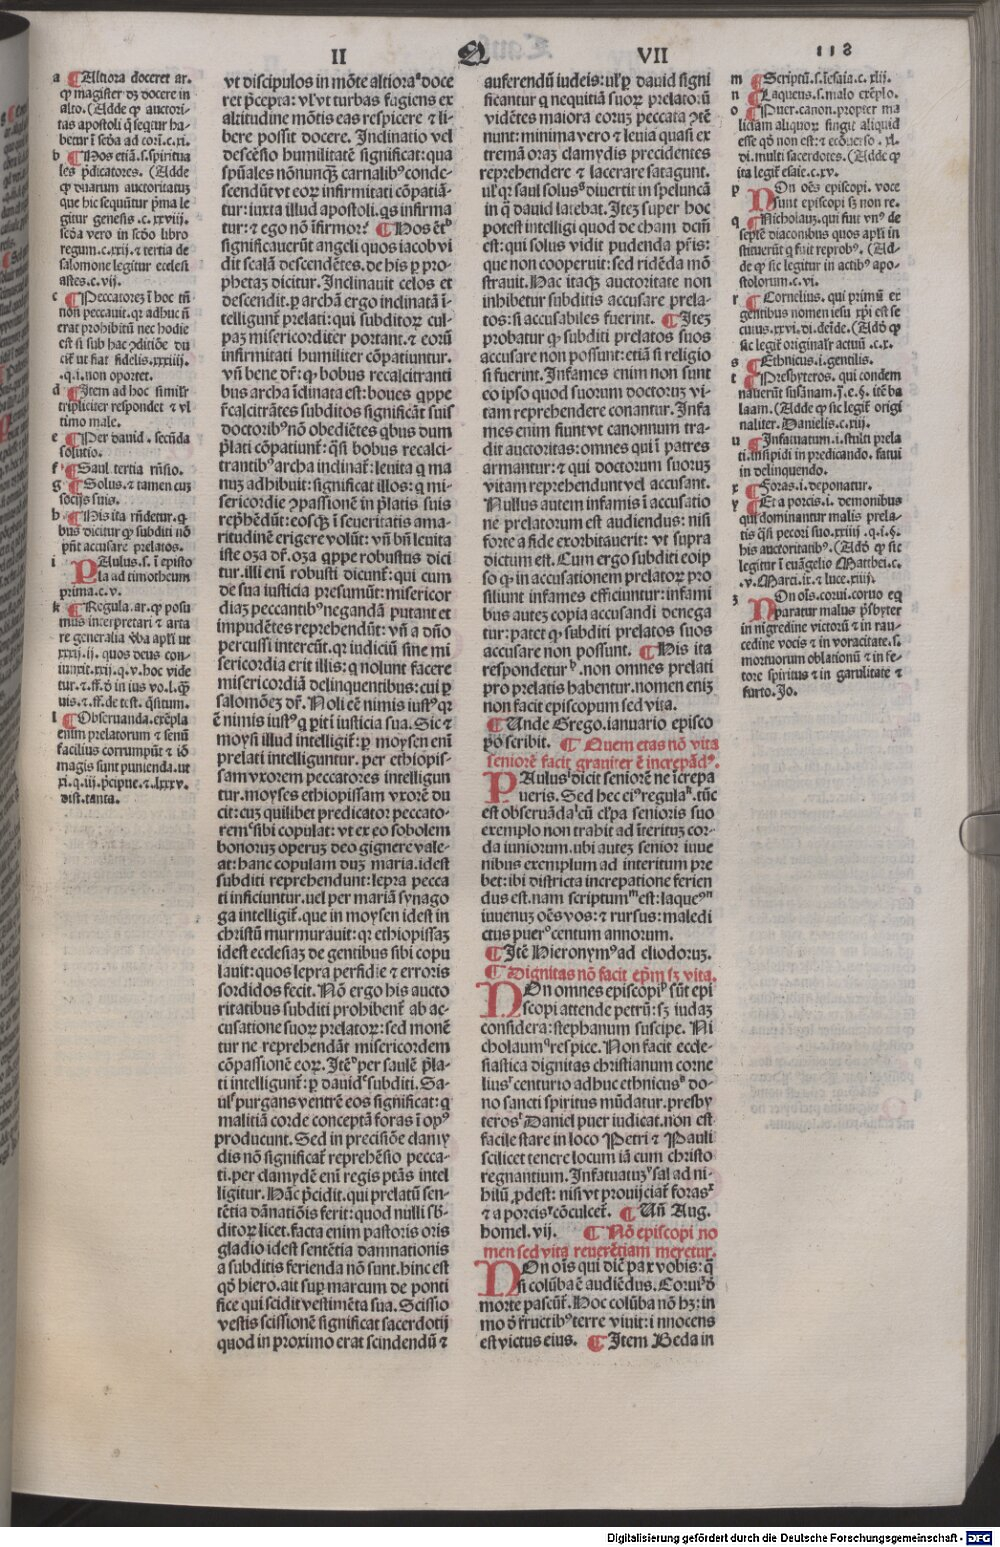 II
Q
VII
118
a ¶ Altiora doceret ar.
ꝙ magister dꝫ docere in
alto. (Adde ꝙ auctori-
tas apostoli q̄ seqtur ha-
betur ī scd̄a ad cori.c.xi.
b ¶ Nos etiā.s.spiritua
les p̄dicatores. (Adde
ꝙ duarum auctoritatuꝫ
que hic sequūtur p̄ma le
gitur genesis.c.xxviij.
scd̄a vero in scd̄o libro
regum.c.xxij. ⁊ tertia de
salomone legitur ecclesi
astes.c.vij.
c ¶ Peccatores ī hoc tn̄
non peccauit. qꝛ adhuc n̄
erat prohibitū nec hodie
est si sub hac ↄditiōe du
cit̄ ut fiat fidelis.xxiij.
.q.i.non oportet.
d ¶ Item ad hoc simil̄r
tripliciter respondet ⁊ vl
timo male.
e ¶ Per dauid. secūda
solutio.
f ¶ Saul tertia rn̄sio.
g ¶ Solus. ⁊ tamen cuꝫ
socijs suis.
h ¶ His ita rn̄detur. q
bus dicitur ꝙ subditi nō
pn̄t accusare prelatos.
i PAulus.s.ī episto
la ad timotheum
prima.c.v.
k ¶ Regula. ar. ꝙ posu
mus interpretari ⁊ arta
re generalia v̄ba apl̄i ut
xxxij.ij. quos deus con-
iunxit.xxij.q.v. hoc vide
tur. ⁊ .ff. d̄ in ius vo.l.q̄ꝫ
uis. ⁊ .ff. de test. q̄situm.
l ¶ Obseruanda. exēpla
enim prelatorum ⁊ senū
facilius corrumpūt ⁊ iō
magis sunt punienda. ut
xi.q.iij.p̄cipue. ⁊ .lxxxv.
dist. tanta.
vt discipulos in mōte altioraᵃ doce
ret p̄cepta: vl̓ vt turbas fugiens ex
altitudine mōtis eas respicere ⁊ li-
bere possit docere. Inclinatio vel
descēsio humilitatē significat: qua
spūales nōnunqꝫ carnalibꝰ conde-
scendūt vt eoꝝ infirmitati cōpatiā-
tur: iuxta illud apostoli. qs infirma
tur: ⁊ ego nō īfirmor? ¶ Hos ēt̄ᵇ
significauerūt angeli quos iacob vi
dit scalā descendētes. de his ꝑ pro-
phetaꝫ dicitur. Inclinauit celos et
descendit. ꝑ archā ergo inclinatā ī-
telligunt̄ prelati: qui subditoꝝ cul-
paꝫ misericorditer portant. ⁊ eorū
infirmitati humiliter cōpatiuntur.
vn̄ bene dr̄: ꝙ bobus recalcitranti
bus archa īclinata est: boues qppe
r̄calcitrātes subditos significāt suis
doctoribꝰ nō obediētes qbus dum
p̄lati cōpatiunt̄: q̄si bobus recalci-
trantibꝰ archa inclinat̄: leuita q ma
nuꝫ adhibuit: significat illos: q mi-
sericordie ↄpassionē in p̄latis suis
rep̄hēdūt: eosqꝫ ī seueritatis ama-
ritudinē erigere volūt: vn̄ bn̄ leuita
iste oza dr̄. oza qppe robustus dici
tur. illi eni robusti dicunt̄: qui cum
de sua iusticia presumūt: misericor
diaꝫ peccantibꝰ negandā putant et
impudētes reprehendūt: vn̄ a dn̄o
percussi intereūt. qꝛ iudiciū sine mi
sericordia erit illis: q nolunt facere
misericordiā delinquentibus: cui ꝑ
salomōeꝫ dr̄. Noli eē nimis iustꝰ qꝛ
ē nimis iustꝰ q perit ī iusticia sua. Sic ⁊
moysi illud intelligit̄: ꝑ moysen enī
prelati intelliguntur. per ethiopis-
sam vxorem peccatores intelligun
tur. moyses ethiopissam vxorē du
cit: cuꝫ quilibet predicator peccato-
remᶜ sibi copulat: vt ex eo sobolem
bonoruꝫ operuꝫ deo gignere vale-
at: hanc copulam duꝫ maria. idest
subditi reprehendunt: lepra pecca
ti inficiuntur. uel per mariā synago
ga intelligit̄. que in moysen idest in
christū murmurauit: qꝛ ethiopissaꝫ
idest ecclesiaꝫ de gentibus sibi copu
lauit: quos lepra perfidie ⁊ erroris
sordidos fecit. Nō ergo his aucto
ritatibus subditi prohibent̄ ab ac-
cusatione suoꝝ prelatoꝝ: sed monē
tur ne reprehendāt misericordem
cōpassionē eoꝝ. Itēᵈ per saulē p̄la-
ti intelligunt̄: ꝑ dauidᵉ subditi. Sa-
ulᶠ purgans ventrē eos significat: q
malitiā corde conceptā foras ī opꝰ
producunt. Sed in precisiōe clamy
dis nō significat̄ reprehēsio pecca-
ti. per clamydē enī regis ptās intel
ligitur. Hāc p̄cidit. qui prelatū sen-
tētia dānatiōis ferit: quod nulli sb̄-
ditoꝝ licet. facta enim pastoris oris
gladio idest sentētia damnationis
a subditis ferienda nō sunt. hinc est
qd̓ hiero. ait sup̱ marcum de ponti
fice qui scidit vestimēta sua. Scissio
vestis scissionē significat sacerdotij
quod in proximo erat scindendū ⁊
auferendū iudeis: ul̓ ꝑ dauid signi
ficantur q nequitiā suoꝝ prelatorū
vidētes maiora eoruꝫ peccata ↄtē
nunt: minima vero ⁊ leuia quasi ex
tremā oraꝫ clamydis precidentes
reprehendere ⁊ lacerare satagunt.
ul̓ qꝛ saul solusᵍ diuertit in speluncā
in q̄ dauid latebat. Iteꝫ super hoc
potest intelligi quod de cham dcm̄
est: qui solus vidit pudenda pr̄is:
que non cooperuit: sed ridēda mō
strauit. Hac itaqꝫ auctoritate non
inhibetur subditis accusare prela-
tos: si accusabiles fuerint. ¶ Iteꝫ
probatur ꝙ subditi prelatos suos
accusare non possunt: etiā si religio
si fuerint. Infames enim non sunt
eo ipso quod suorum doctoruꝫ vi-
tam reprehendere conantur. Infa
mes enim fiunt vt canonnum tra-
dit auctoritas: omnes qui ī patres
armantur: ⁊ qui doctorum suoruꝫ
vitam reprehendunt vel accusant.
Nullus autem infamis ī accusatio
ne prelatorum est audiendus: nisi
forte a fide exorbitauerit: vt supra
dictum est. Cum ergo subditi eoip
so ꝙ in accusationem prelatoꝝ pro
siliunt infames efficiuntur: infami
bus auteꝫ copia accusandi denega
tur: patet ꝙ subditi prelatos suos
accusare non possunt. ¶ His ita
respondeturʰ. non omnes prelati
pro prelatis habentur. nomen eniꝫ
non facit episcopum sed vita.
¶ Unde Grego. ianuario episco
po scribit. ¶ Quem etas nō vita
seniorē facit grauiter ē increpādꝰ.
PAulusⁱ dicit seniorē ne īcrepa
ueris. Sed hec eiꝰ regulaᵏ. tūc
est obseruādaˡ cū culpa senioris suo
exemplo non trahit ad īteritꝫ cor-
da iuniorum. ubi auteꝫ senior iuue
nibus exemplum ad interitum pre
bet: ibi districta increpatione ferien
dus est. nam scriptumᵐ est: laqueꝰⁿ
iuuenuꝫ oēs vos: ⁊ rursus: maledi
ctus puerᵒ centum annorum.
¶ Itē Hieronymꝰ ad eliodoruꝫ.
¶ Dignitas nō facit ep̄m sꝫ vita.
NOn omnes episcopiᵖ sūt epi
scopi attende petrū: sꝫ iudaꝫ
considera: stephanum suscipe. Ni
cholaumq respice. Non facit eccle-
siastica dignitas christianum corne
liusʳ centurio adhuc ethnicusˢ do-
no sancti spiritus mūdatur. presby
terosᵗ Daniel puer iudicat. non est
facile stare in loco Petri ⁊ Pauli
scilicet tenere locum iā cum christo
regnantium. Infatuatuꝫᵘ sal ad ni-
hilū ꝓdest: nisi vt proijciat̄ forasˣ
⁊ a porcisʸ cōculcet̄. ¶ Un̄ Aug.
homel.vij. ¶ Nō episcopi no
men sed vita reuerētiam meretur.
NOn oīsᶻ qui dicit pax vobis: q̄
si colūba ē audiēdus. Corui d̓
morte pascūt̄. Hoc colūba nō hꝫ: in
mo d̓ fructibꝰ terre viuit: īnnocens
est victus eius. ¶ Item Beda in
m ¶ Scriptū.s.īesaia.c.xlij.
n ¶ Laqueus.s.malo exēplo.
o ¶ Puer. canon. propter ma
liciam aliquoꝝ fingit aliquid
esse qd̓ non est: ⁊ ecōuerso. xl.
di. multi sacerdotes. (Adde ꝙ
ita legit̄ esaie.c.xv.
p NOn oēs episcopi. voce
sunt episcopi sꝫ non re.
q ¶ Nicholauꝫ. qui fuit vnꝰ de
septē diaconibus quos apl̄i in
stituerūt q̄ fuit reprobꝰ. (Ad-
de ꝙ sic legitur in actibꝰ apo-
stolorum.c.vi.
r ¶ Cornelius. qui primū ex
gentibus nomen iesu xp̄i est se
cutus.xxvi.di.deīde. (Add̓ ꝙ
sic legit̄ originalr̄ actuū.c.x.
s ¶ Ethnicus.i.gentilis.
t ¶ Presbyteros. qui condem
nauerūt susānam.j.e.§.itē ba
laam. (Adde ꝙ sic legit̄ origi
naliter. Danielis.c.xiij.
u ¶ Infatuatum.i.stulti prela
ti. insipidi in predicando. fatui
in delinquendo.
x ¶ Foras.i.deponatur.
y ¶ Et a porcis.i.demonibus
qui dominantur malis prela-
tis q̄si pecori suo.xxiij.q.i.§.
his auctoritatibꝰ. (Add̓ ꝙ sic
legitur ī euāgelio Matthei.c.
.v. Marci.ix. ⁊ luce.xiiij.
z NOn oīs. corui. coruo eq
paratur malus p̄sbyter
in nigredine victorū ⁊ in rau-
cedine vocis ⁊ in voracitate.s.
mortuorum oblationū ⁊ in fe-
tore spiritus ⁊ in garulitate ⁊
furto. Jo.
Digitalisierung gefördert durch die Deutsche Forschungsgemeinschaft - DFG